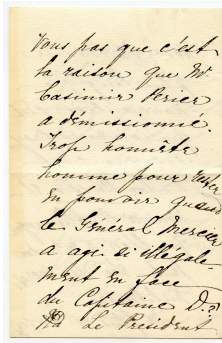 Vous pas que c'est
la raison que Mr
Casimir Perier
a démissionné.
Trop honnête
homme pour rester
en pouvoir quand
le Général Mercier
a agi si illégale
ment en face
du Capitaine D.?
Le President